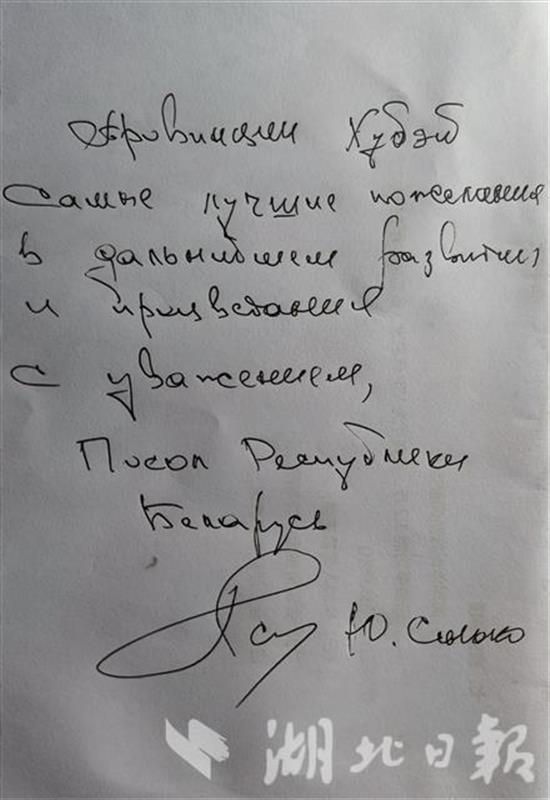 Провинции Хубэй
Самые лучшие пожелания
в дальнейшем развитии
и процветания
С уважением,
Посол Республики
Беларусь
Ю. Сенько
湖北日報